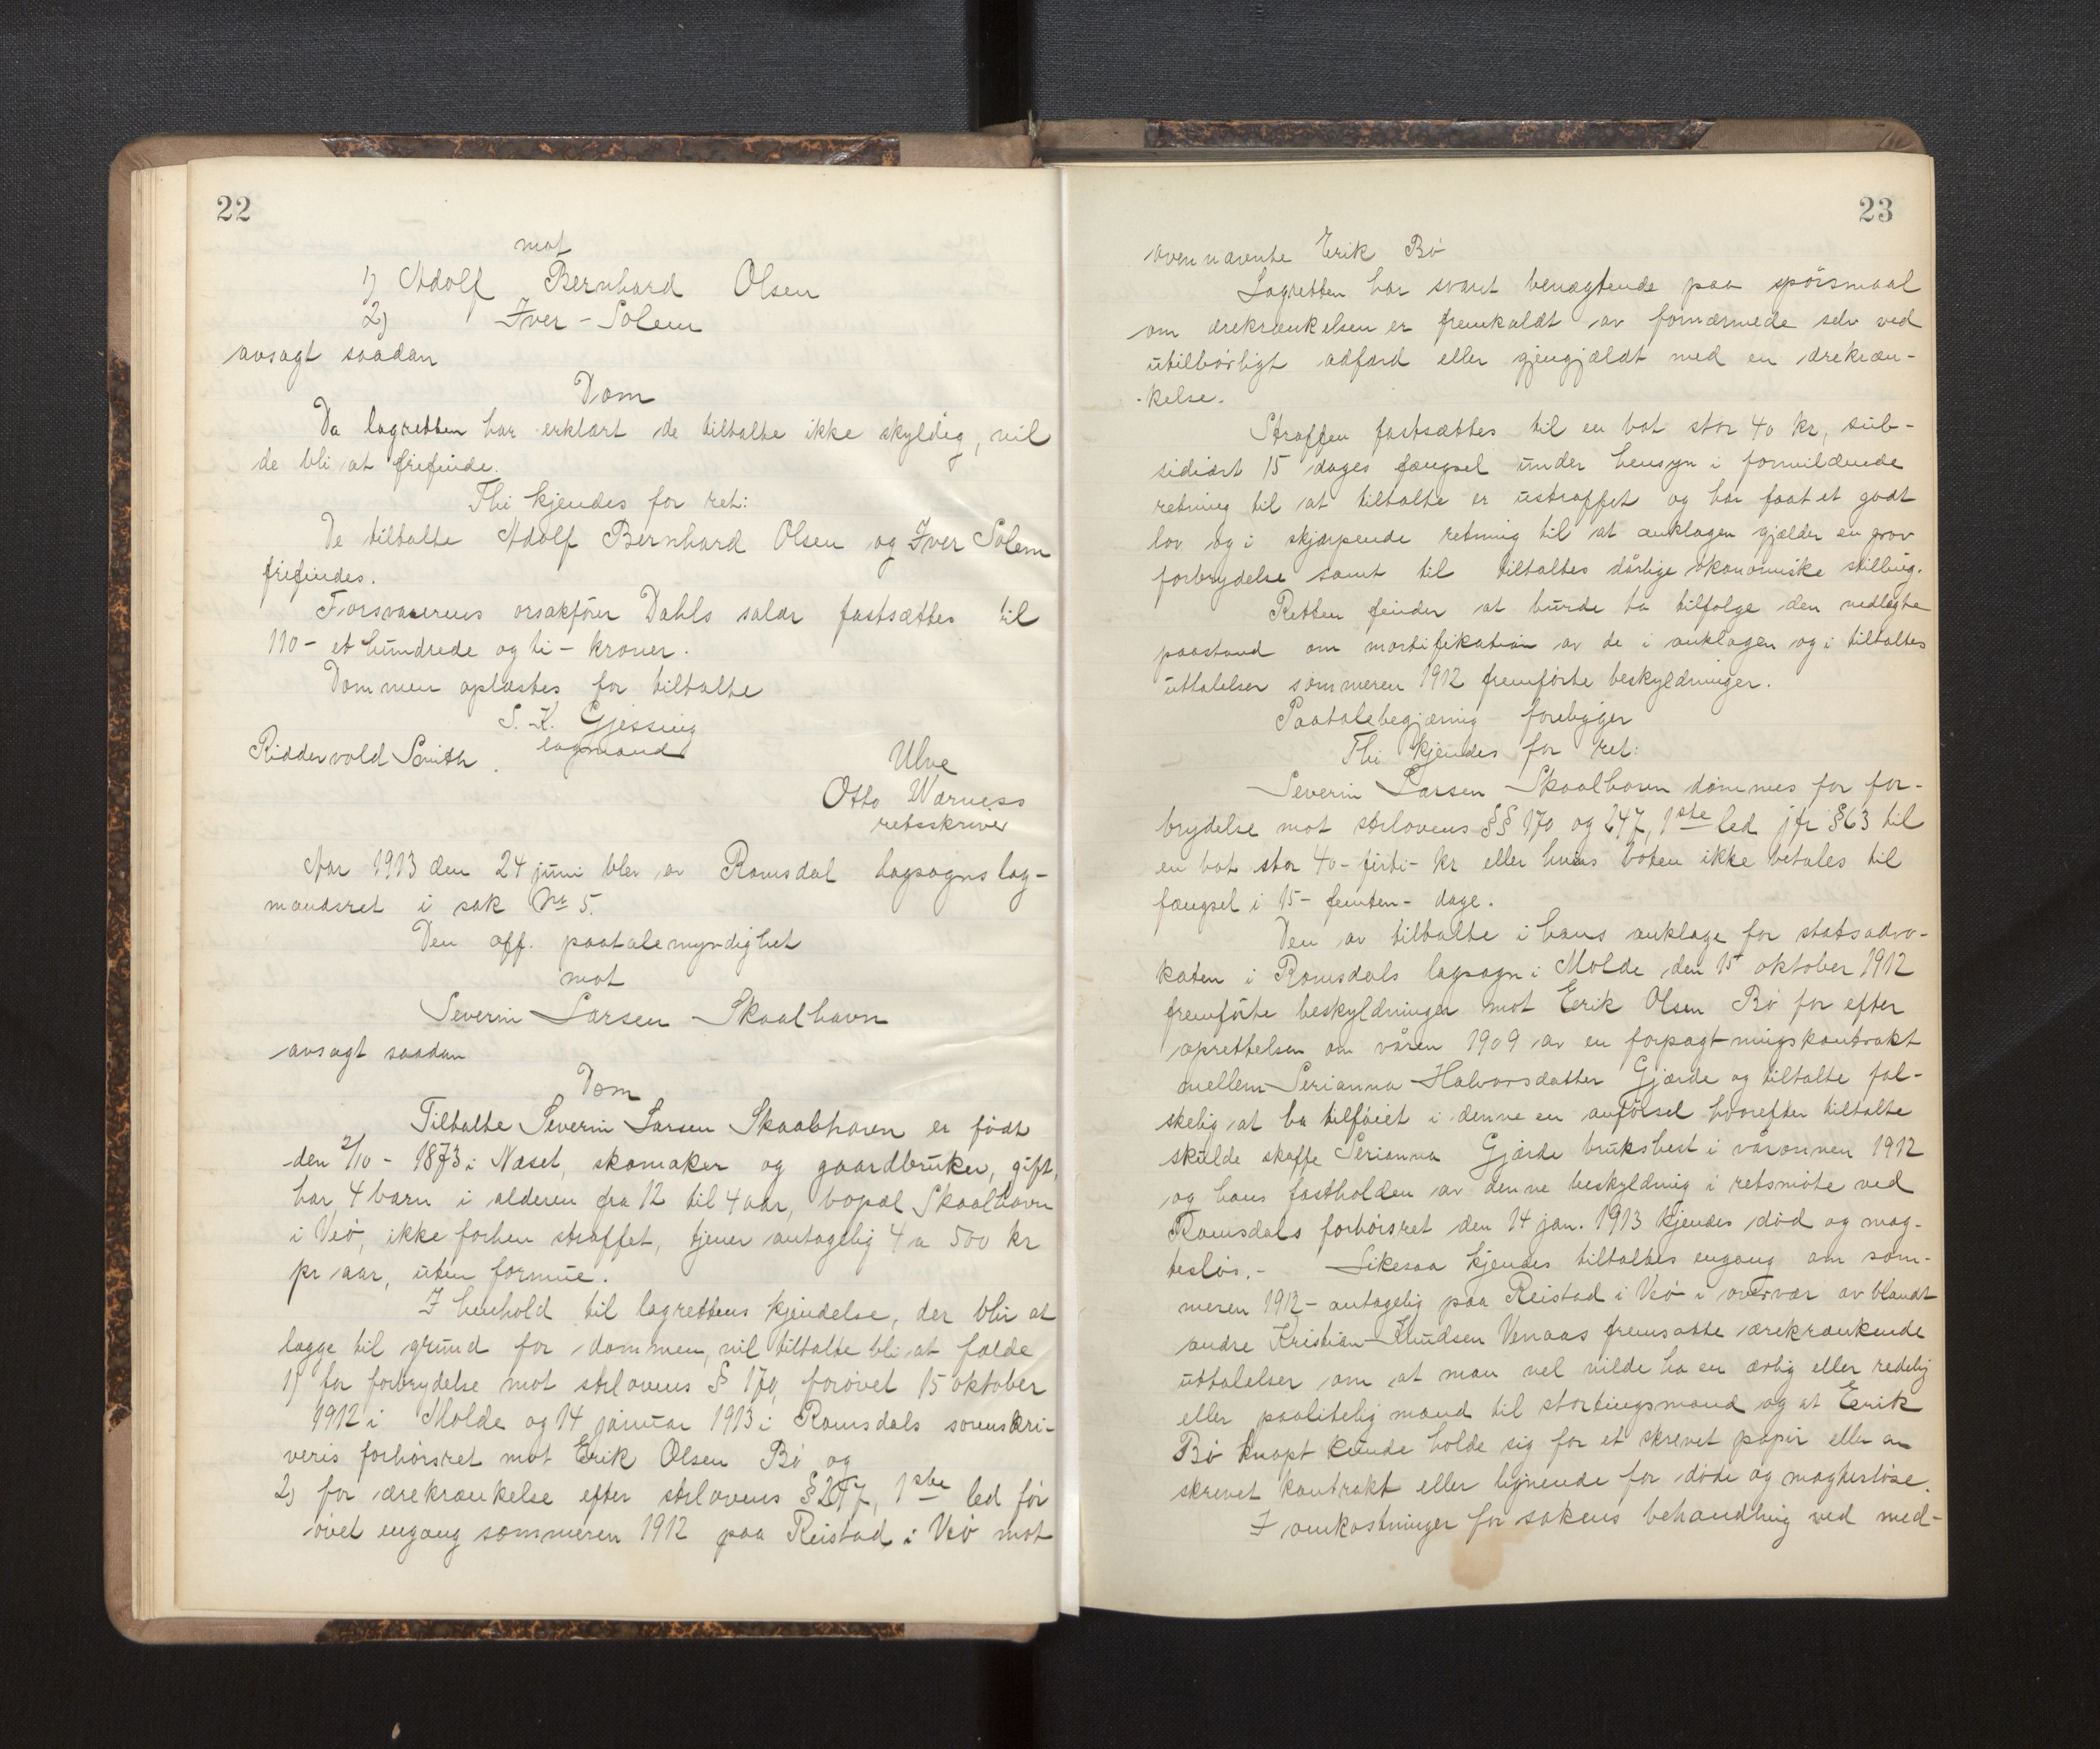 22
mot
1) Adolf Bernhard Olsen
2) Iver Solem
avsagt saadan
Dom
Da lagretten har erklært de tiltalte ikke skyldig, vil
de bli at frifinde.
Thi kjendes for ret:
De tiltalte Adolf Bernhard Olsen og Iver Solem
frifindes.
Forsvarerens orsakfører Dahls salær fastsættes til
110 - et hundrede og ti - kroner.
Dommen oplæstes for tiltalte
S. K. Gjessing
lagmand
Riddervold Smith.
Ulve
Otto Wærness
retsskriver
Aar 1913 den 24 juni blev av Romsdal lagsogns lag-
mandsret i sak Nr 5.
Den off. paatalemyndighet
mot
Severin Larsen Skaalhavn
avsagt saadan
Dom
Tiltalte Severin Larsen Skaalhavn er født
den 2/10 - 1873 i Næset, skomaker og gaardbruker, gift,
har 4 barn i alderen fra 12 til 4 aar, bopæl Skaalhavn
i Veø, ikke forhen straffet, tjener antagelig 4 a 500 kr
pr aar, uten formue.
I henhold til lagrettens kjendelse, der blir at
lægge til grund for dommen, vil tiltalte bli at fælde
1) for forbrydelse mot strlovens § 170, forøvet 15 oktober
1912 i Molde og 14 januar 1913 i Romsdals sorenskri-
veris forhørsret mot Erik Olsen Bø og
2) for ærekrænkelse efter strlovens § 247, 1ste led for
øvet engang sommeren 1912 paa Reistad i Veø mot
23
ovennævnte Erik Bø
Lagretten har svaret benægtende paa spørsmaal
om ærekrænkelsen er fremkaldt av fornærmede selv ved
utilbørligt adfærd eller gjengjældt med en ærekræn-
-kelse.
Straffen fastsættes til en bot stor 40 kr, sub-
sidiært 15 dages fængsel under hensyn i formildnede
retning til at tiltalte er ustraffet og har faat et godt
lov og i skjærpende retning til at anklagen gjælder en grov
forbrydelse samt til tiltaltes dårlige økonomiske stilling.
Retten finder at burde ta tilfølge den nedlagte
paastand om mortifikation av de i anklagen og i tiltaltes
uttalelser sommeren 1912 fremførte beskyldninger.
Paatalebegjæring forebygger
Thi kjendes for ret:
Severin Larsen Skaalhavn dømmes for for-
brydelse mot strlovens §§ 170 og 247, 1ste led jfr § 63 til
en bot stor 40 - firti - kr eller hvis boten ikke betales til
fængsel i 15 - femten - dage.
Den av tiltalte i hans anklage for statsadvo-
katen i Romsdals lagsogn i Molde den 15 oktober 1912
fremførte beskyldninger mot Erik Olsen Bø for efter
oprettelsen om våren 1909 av en forpagtningskontrakt
mellem Serianna Halvorsdatter Gjærde og tiltalte fal-
skelig at ha tilføiet i denne en anførsel hvorefter tiltalte
skulde skaffe Serianna Gjærde brukshest i våronnen 1912
og hans fastholden av denne beskyldning i retsmøte ved
Romsdals forhørsret den 14 jan. 1913 kjendes død og mag-
tesløs. - Likesaa kjendes tiltaltes engang om som-
meren 1912 - antagelig paa Reistad i Veø i overvær av blandt
andre Kristian Knudsen Venaas fremsatte ærekrænkende
uttalelser om at man vel vilde ha en ærlig eller redelig
eller paalitelig mand til stortingsmand og at Erik
Bø knapt kunde holde sig for et skrevet papir eller en
skrevet kontrakt eller lignende for døde og magtesløse.
I omkostninger for sakens behandling ved med-